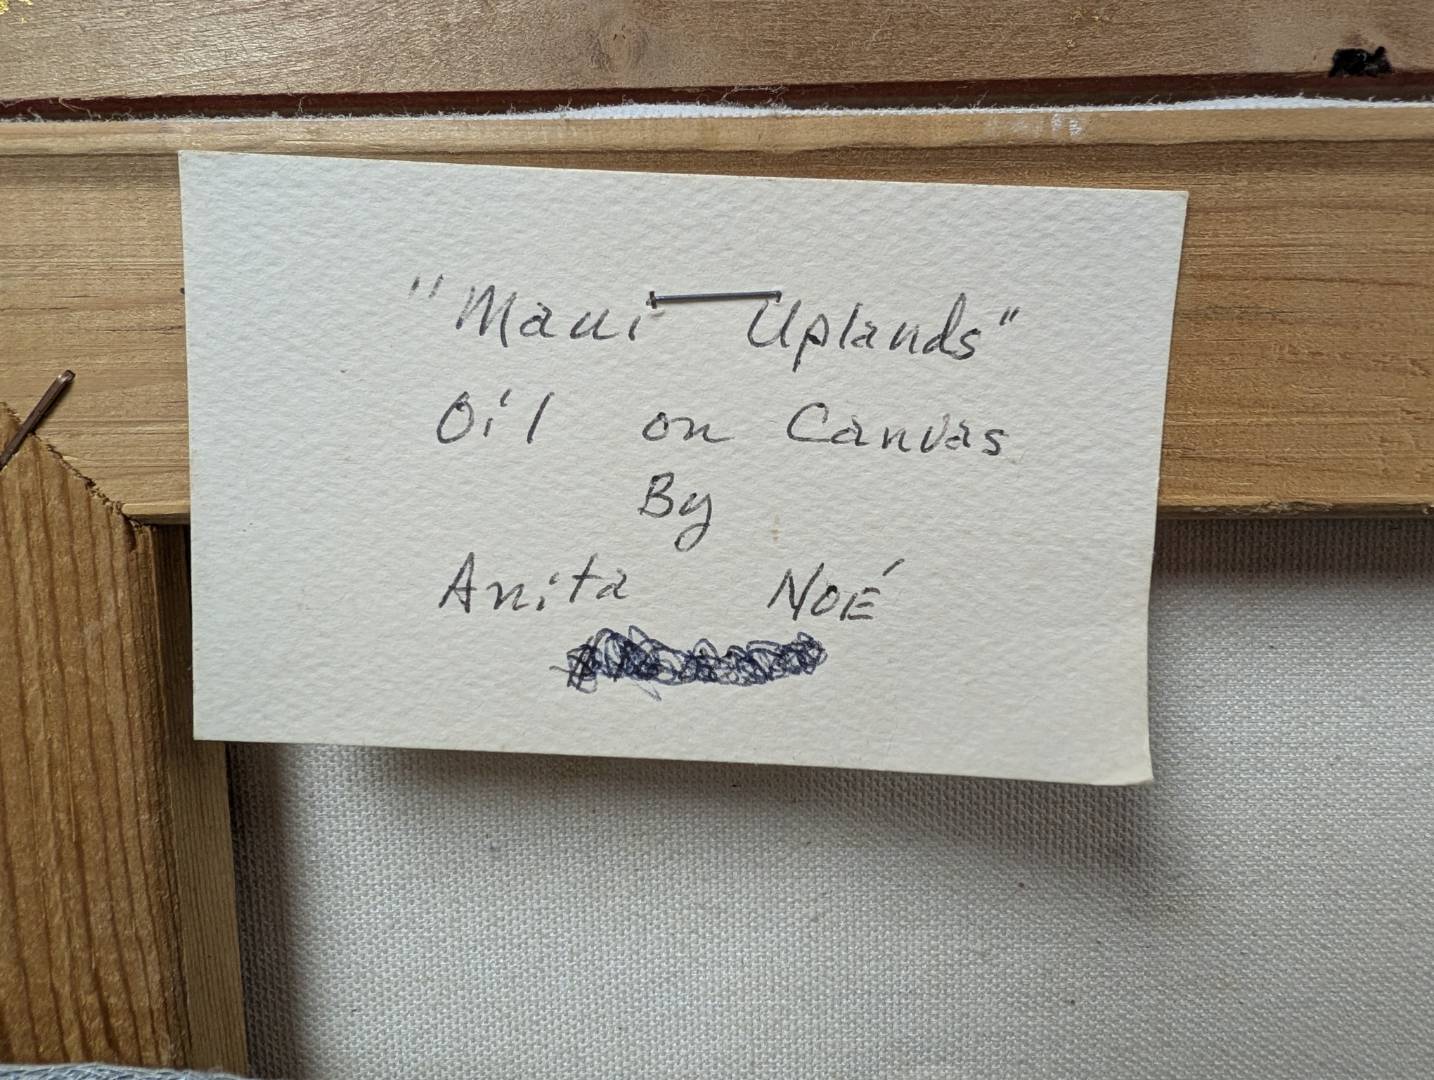 "Maui Uplands"
Oil on Canvas
By
Anita NOÉ